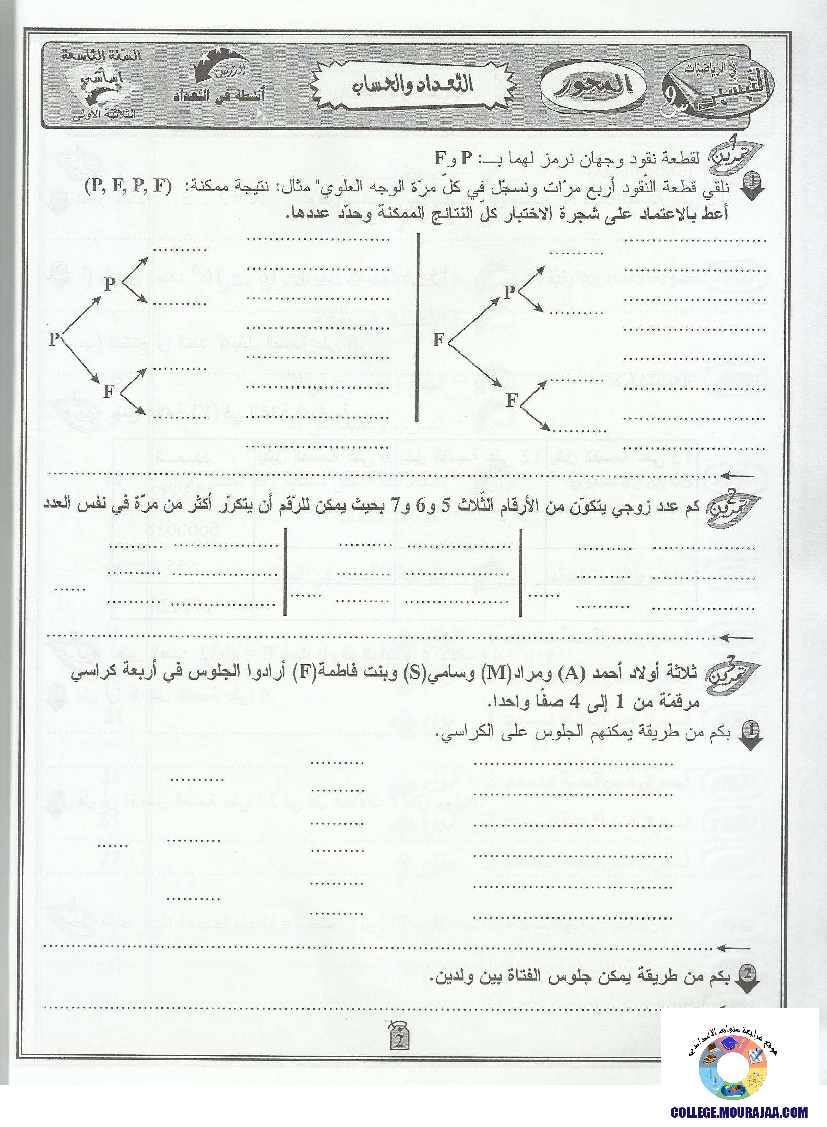 السنة التاسعة
أساسي
الثلاثية الأولى
الدرس
أنشطة في التعداد
التعداد والحساب
المحور
في الرياضيات
9
تمرين 1
لقطعة نقود وجهان نرمز لهما بـ: P و F
1 نلقي قطعة النقود أربع مرّات ونسجّل في كلّ مرّة الوجه العلوي" مثال: نتيجة ممكنة: (P, F, P, F)
أعط بالاعتماد على شجرة الاختبار كلّ النتائج الممكنة وحدّد عددها.
P
P
F
P
F
F
تمرين 2
كم عدد زوجي يتكوّن من الأرقام الثّلاث 5 و6 و7 بحيث يمكن للرّقم أن يتكرّر أكثر من مرّة في نفس العدد
تمرين 3
ثلاثة أولاد أحمد (A) ومراد(M) وسامي(S) وبنت فاطمة(F) أرادوا الجلوس في أربعة كراسي
مرقمّة من 1 إلى 4 صفّا واحدا.
1 بكم من طريقة يمكنهم الجلوس على الكراسي.
2 بكم من طريقة يمكن جلوس الفتاة بين ولدين.
2
موقع مراجعة
COLLEGE.MOURAJAA.COM